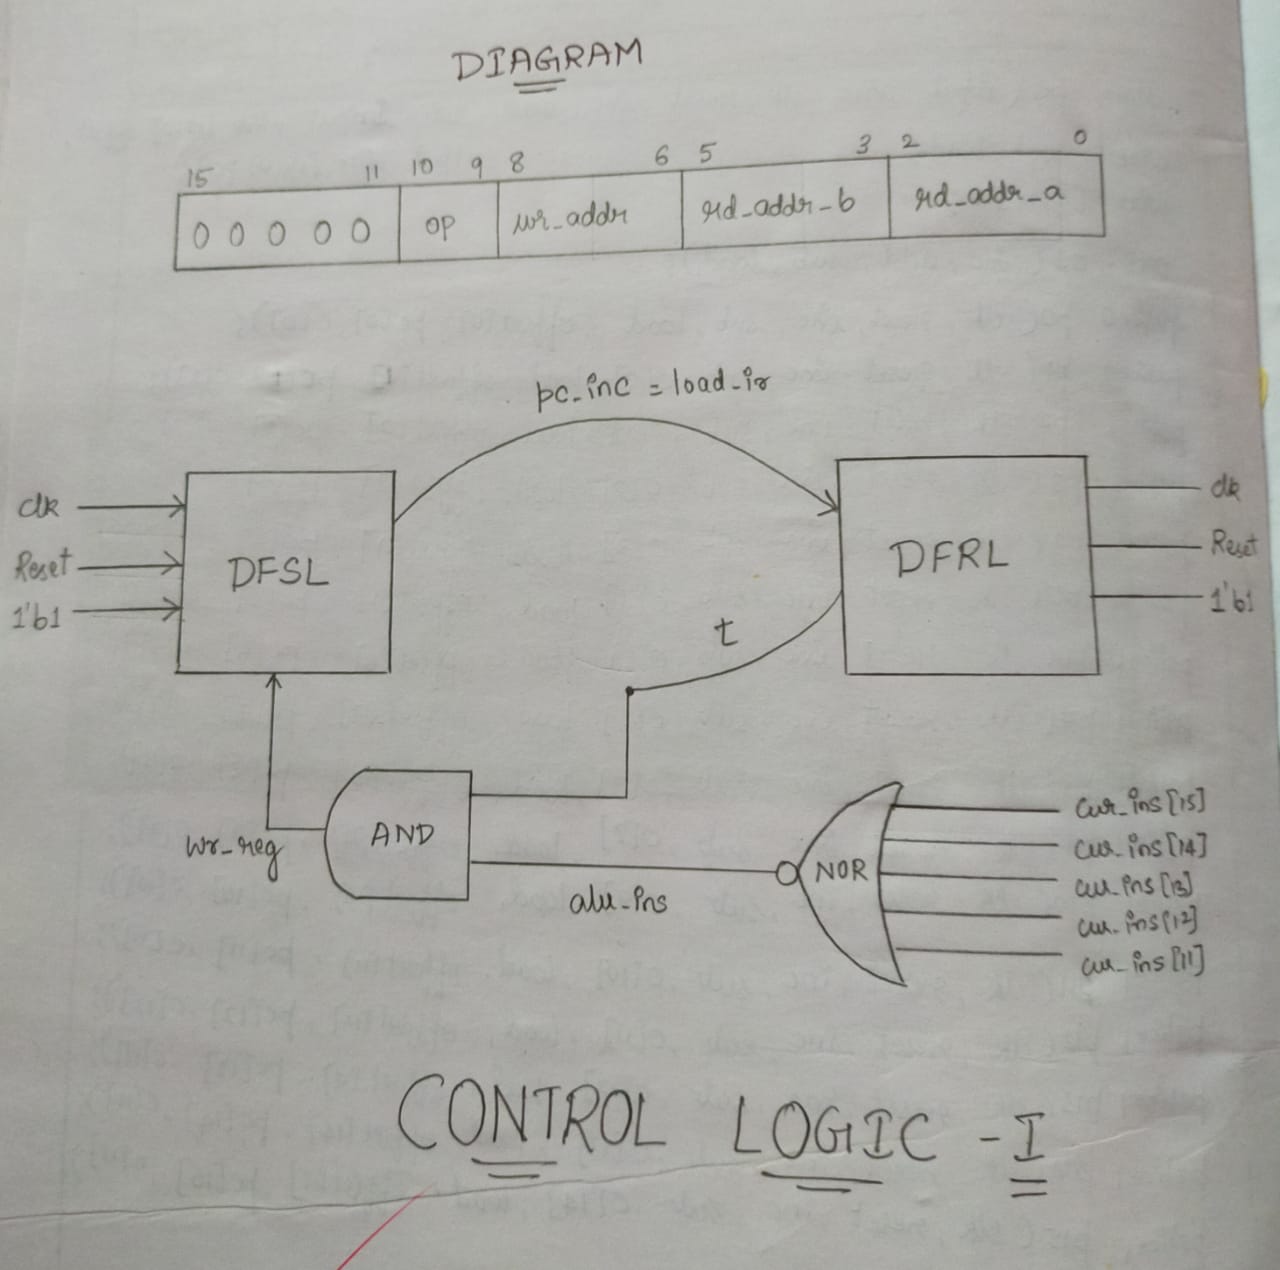 DIAGRAM
15 11 10 9 8 6 5 3 2 0
0 0 0 0 0 op wr_addr rd_addr_b rd_addr_a
pc_inc = load_ir
clk
Reset
1'b1
DFSL
DFRL
clk
Reset
1'b1
t
wr_reg
AND
alu_ins
NOR
cur_ins[15]
cur_ins[14]
cur_ins[13]
cur_ins[12]
cur_ins[11]
CONTROL LOGIC - I